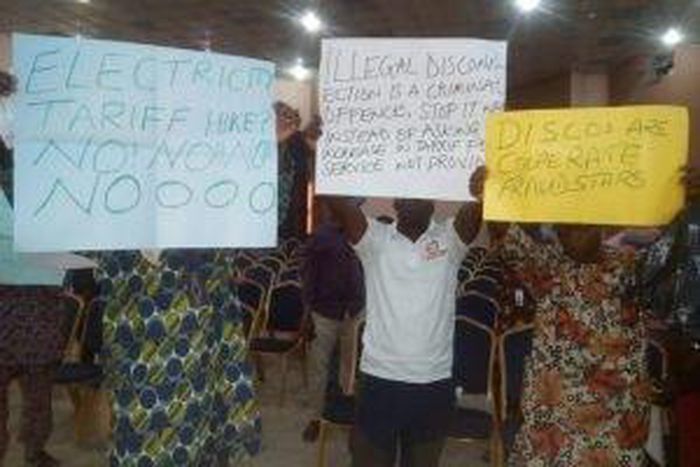 ELECTRICITY
TARIFF HIKE?
NO! NO AND
NOOOO
ILLEGAL DISCONN-
ECTION IS A CRIMINAL
OFFENCE, STOP IT
INSTEAD OF ASKING
INCREASE IN TARIFF
SERVICE NOT
DISCOS ARE
COOPERATE
FRAUDSTARS